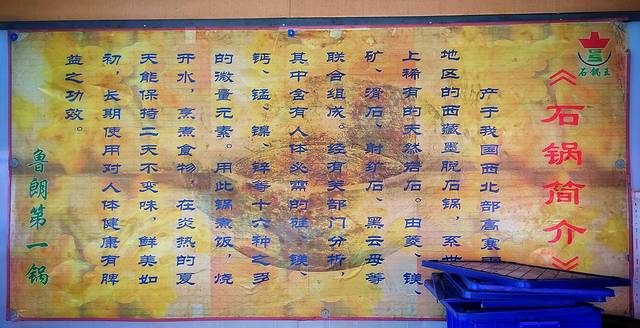 石锅王
《石锅简介》
产于我国西北部高寒
地区的西藏墨脱石锅，系世
上稀有的天然岩石。由菱、镁、
矿、滑石、射纩石、黑云母等
联合组成。经有关部门分析，
其中含有人体必需的硅、镁、
钙、锰、镍、锌等十六种之多
的微量元素。用此锅煮饭，烧
开水，烹煮食物，在炎热的夏
天能保持二天不变味，鲜美如
初，长期使用对人体健康有脾
益之功效。
鲁朗第一锅